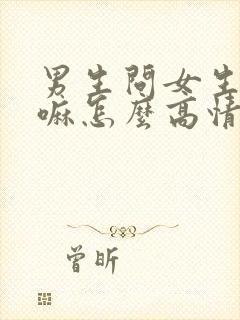 男生問女生
嘛怎麼高情
曾昕